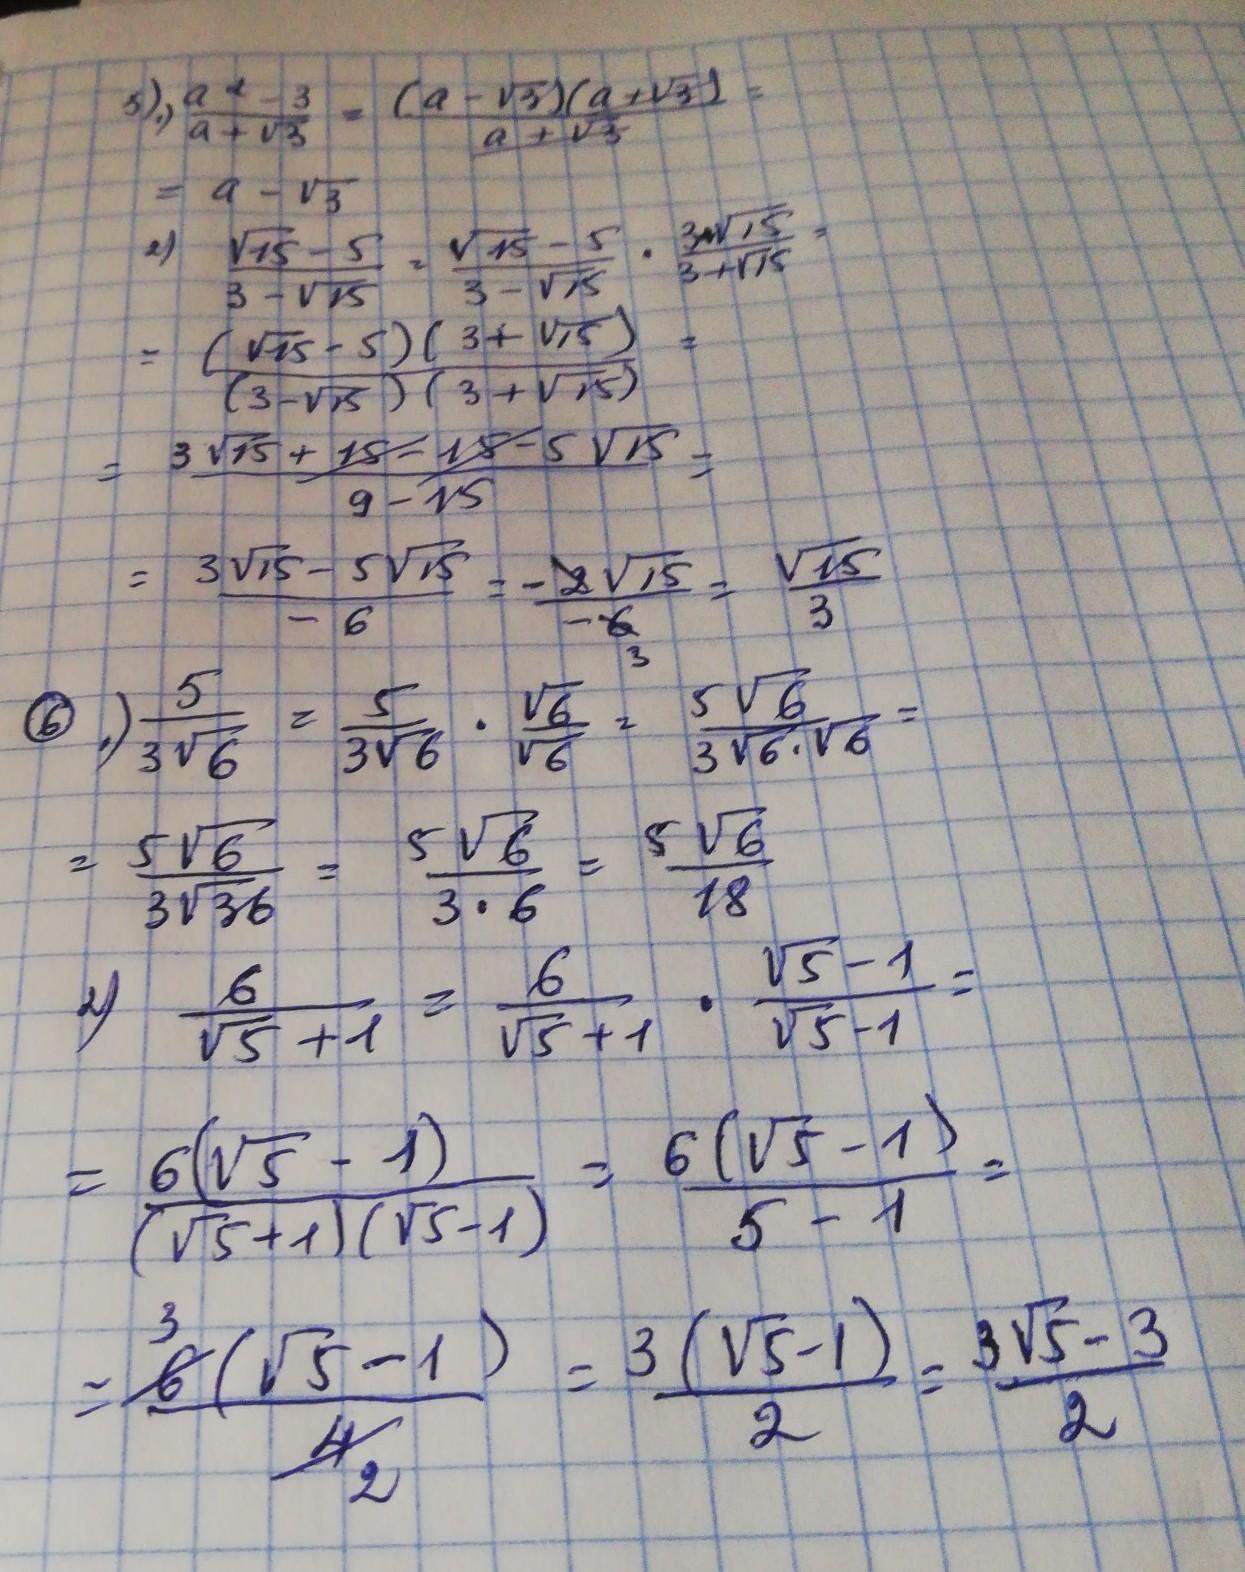 5) 1) (a² - 3)/(a + √3) = ((a - √3)(a + √3))/(a + √3) =
= a - √3
2) (√15 - 5)/(3 - √15) = (√15 - 5)/(3 - √15) · (3+√15)/(3+√15) =
= ((√15 - 5)(3 + √15))/((3-√15)(3+√15)) =
= (3√15 + 15 - 15 - 5√15)/(9 - 15) =
= (3√15 - 5√15)/(-6) = (-2√15)/(-6) = √15/3
3
6 1) 5/(3√6) = 5/(3√6) · √6/√6 = (5√6)/(3√6·√6) =
= (5√6)/(3√36) = (5√6)/(3·6) = (5√6)/18
2) 6/(√5 + 1) = 6/(√5 + 1) · (√5 - 1)/(√5 - 1) =
= (6(√5 - 1))/((√5+1)(√5-1)) = (6(√5 - 1))/(5 - 1) =
3
= (6(√5 - 1))/4 = (3(√5-1))/2 = (3√5 - 3)/2
2